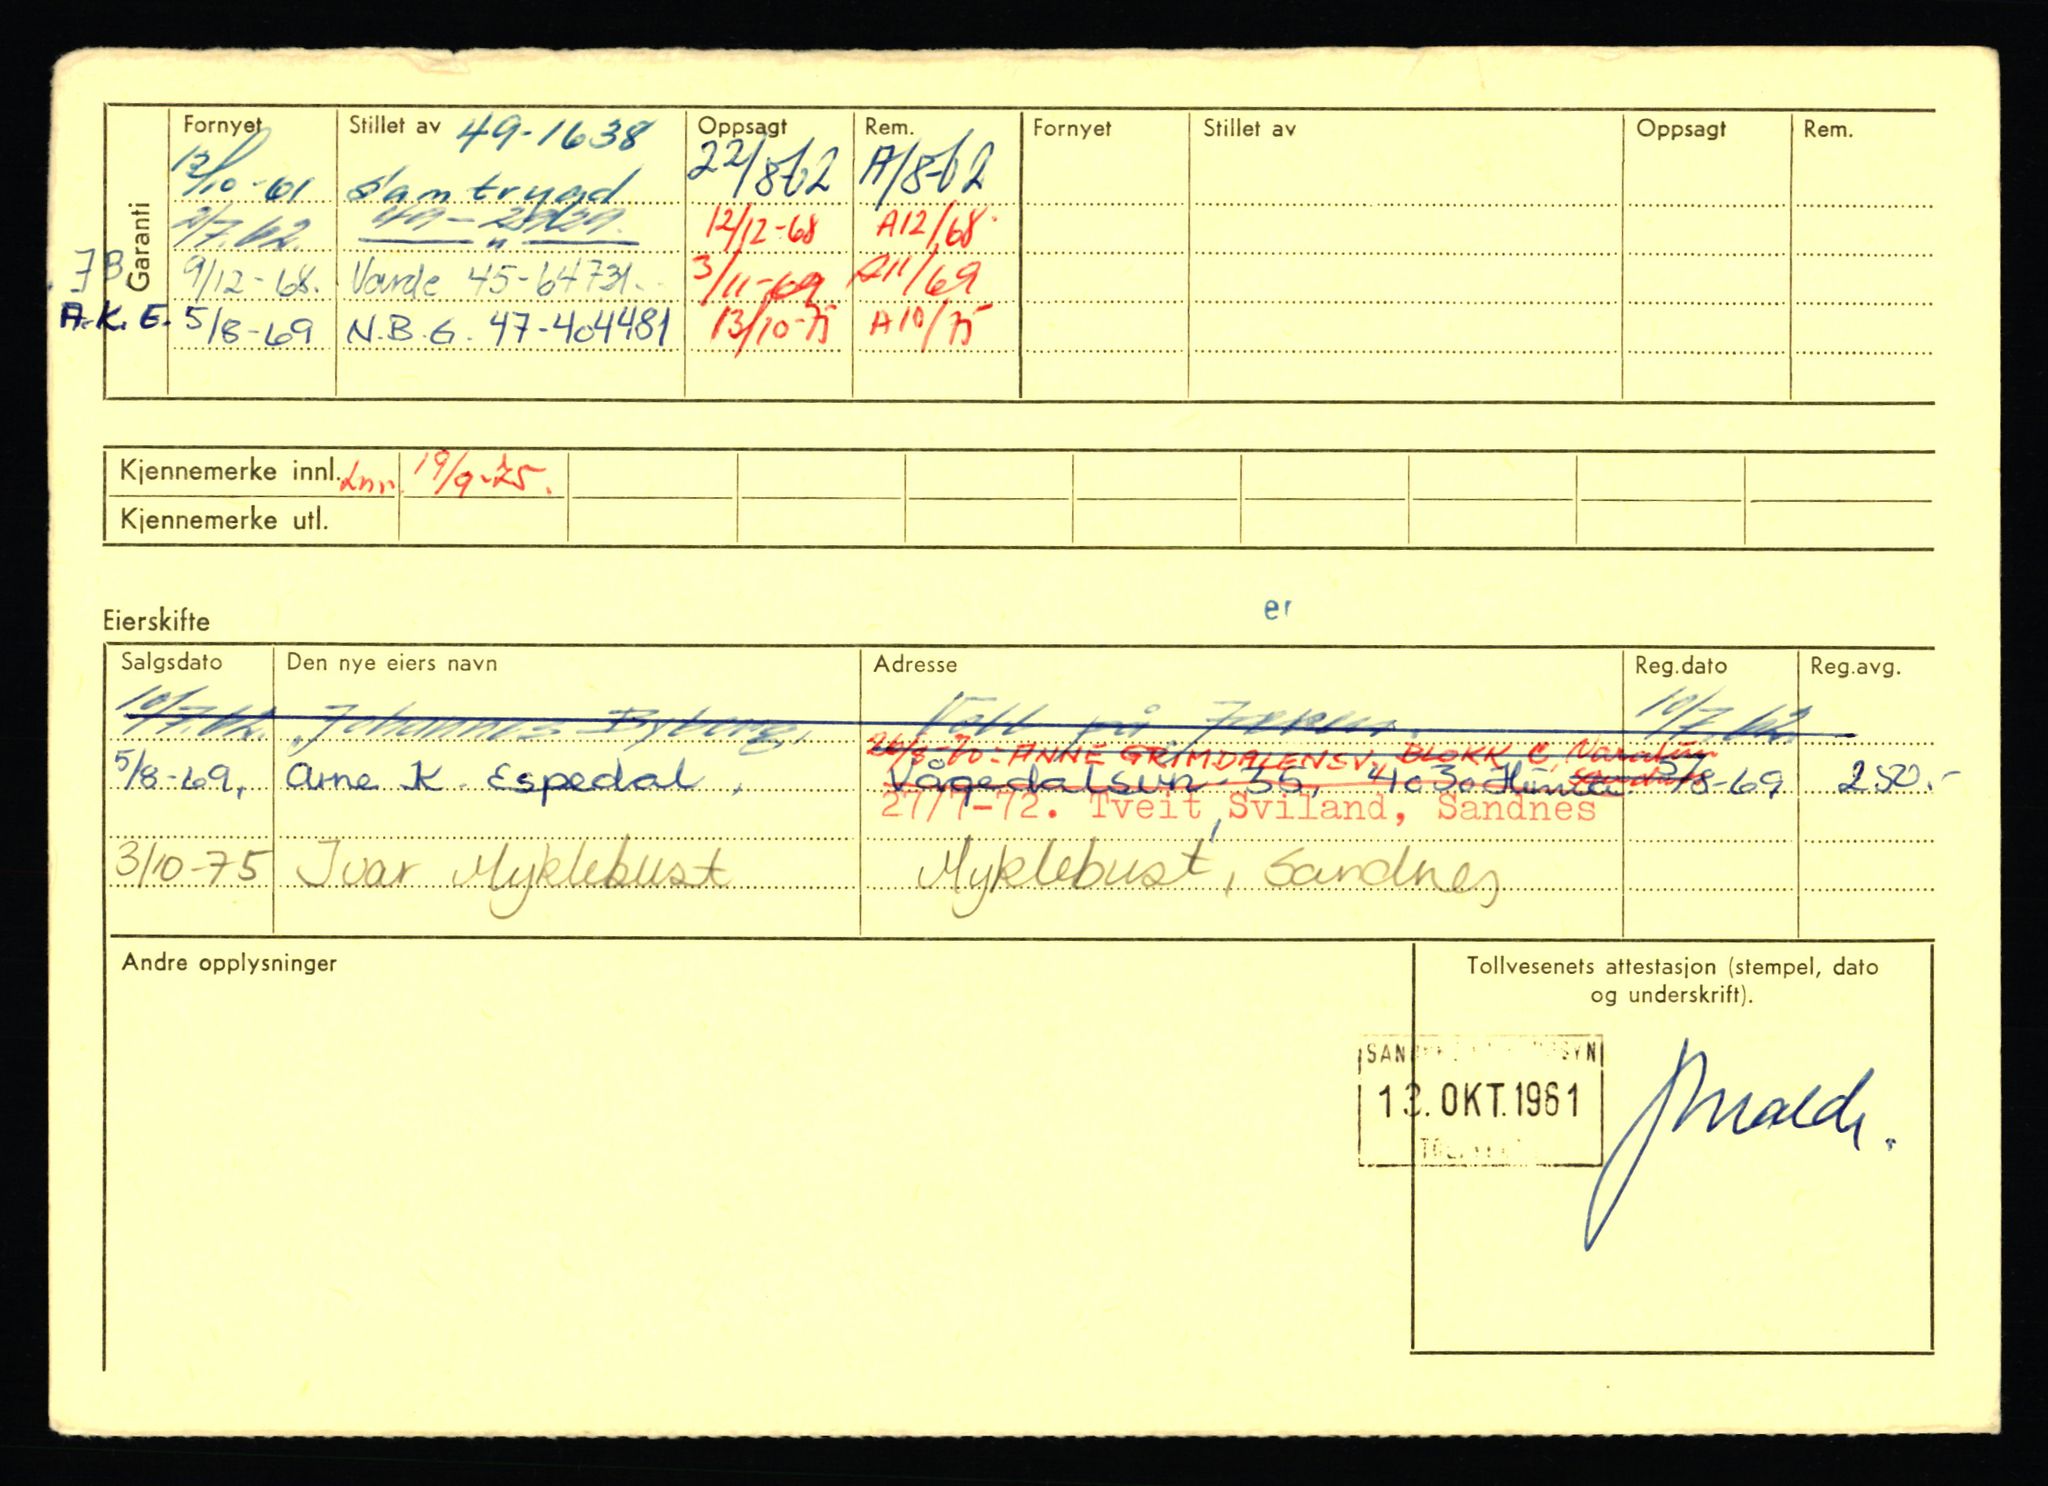 Fornyet Stillet av 49-1638 Oppsagt Rem. Fornyet Stillet av Oppsagt Rem.
Garanti
/10-61 Samtrygd 22/8-62 A/8-62
2/7.62. 12/12-68 A12/68.
JB 9/12-68. Varde 45-64731. 3/11-69 A11/69
A.K.E. 5/8-69 N.B.G. 47-404481 13/10-75 A10/75
Kjennemerke innl. Inn. 19/9-75.
Kjennemerke utl.
er
Eierskifte
Salgsdato Den nye eiers navn Adresse Reg.dato Reg.avg.
10/7.62. Johannes Byberg, på Jæren. 10/7.62.
26/8-70: ANNE GRIMDALENSV. BLOKK C
5/8-69, Arne K. Espedal, Vågedalsvn 35, 4030 Hinna 5/8-69 250.-
27/7-72. Tveit, Sviland, Sandnes
3/10-75 Ivar Myklebust Myklebust, Sandnes
Andre opplysninger
Tollvesenets attestasjon (stempel, dato
og underskrift).
13. OKT. 1961